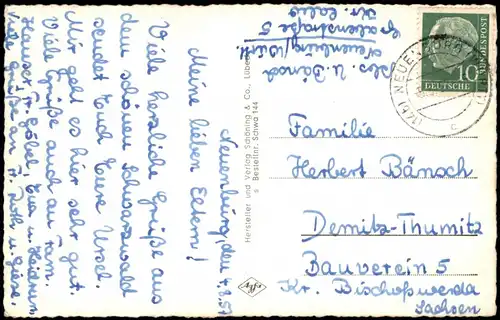 Neuenburg, den 4.8.57
Meine lieben Eltern!
Viele herzliche Grüße aus
dem schönen Schwarzwald
sendet Euch Eure Ursel.
Mir geht es hier sehr gut.
Viele Grüße auch an Fam.
Hauser, Fr. Göbel, Eva u. Heidrun
Viele Grüße an Fr. Roth u. Giese.
Hersteller und Verlag Schöning & Co., Lübeck
Bestellnr. Schwa 144
Agfa
Abs. U. Bänsch
Neuenburg/Württ.
Gräfenstraße 5
Kr. Calw
DEUTSCHE BUNDESPOST
10
(14b) NEUENBÜRG
c
Familie
Herbert Bänsch
Demitz-Thumitz
Bauverein 5
Kr. Bischofswerda
Sachsen